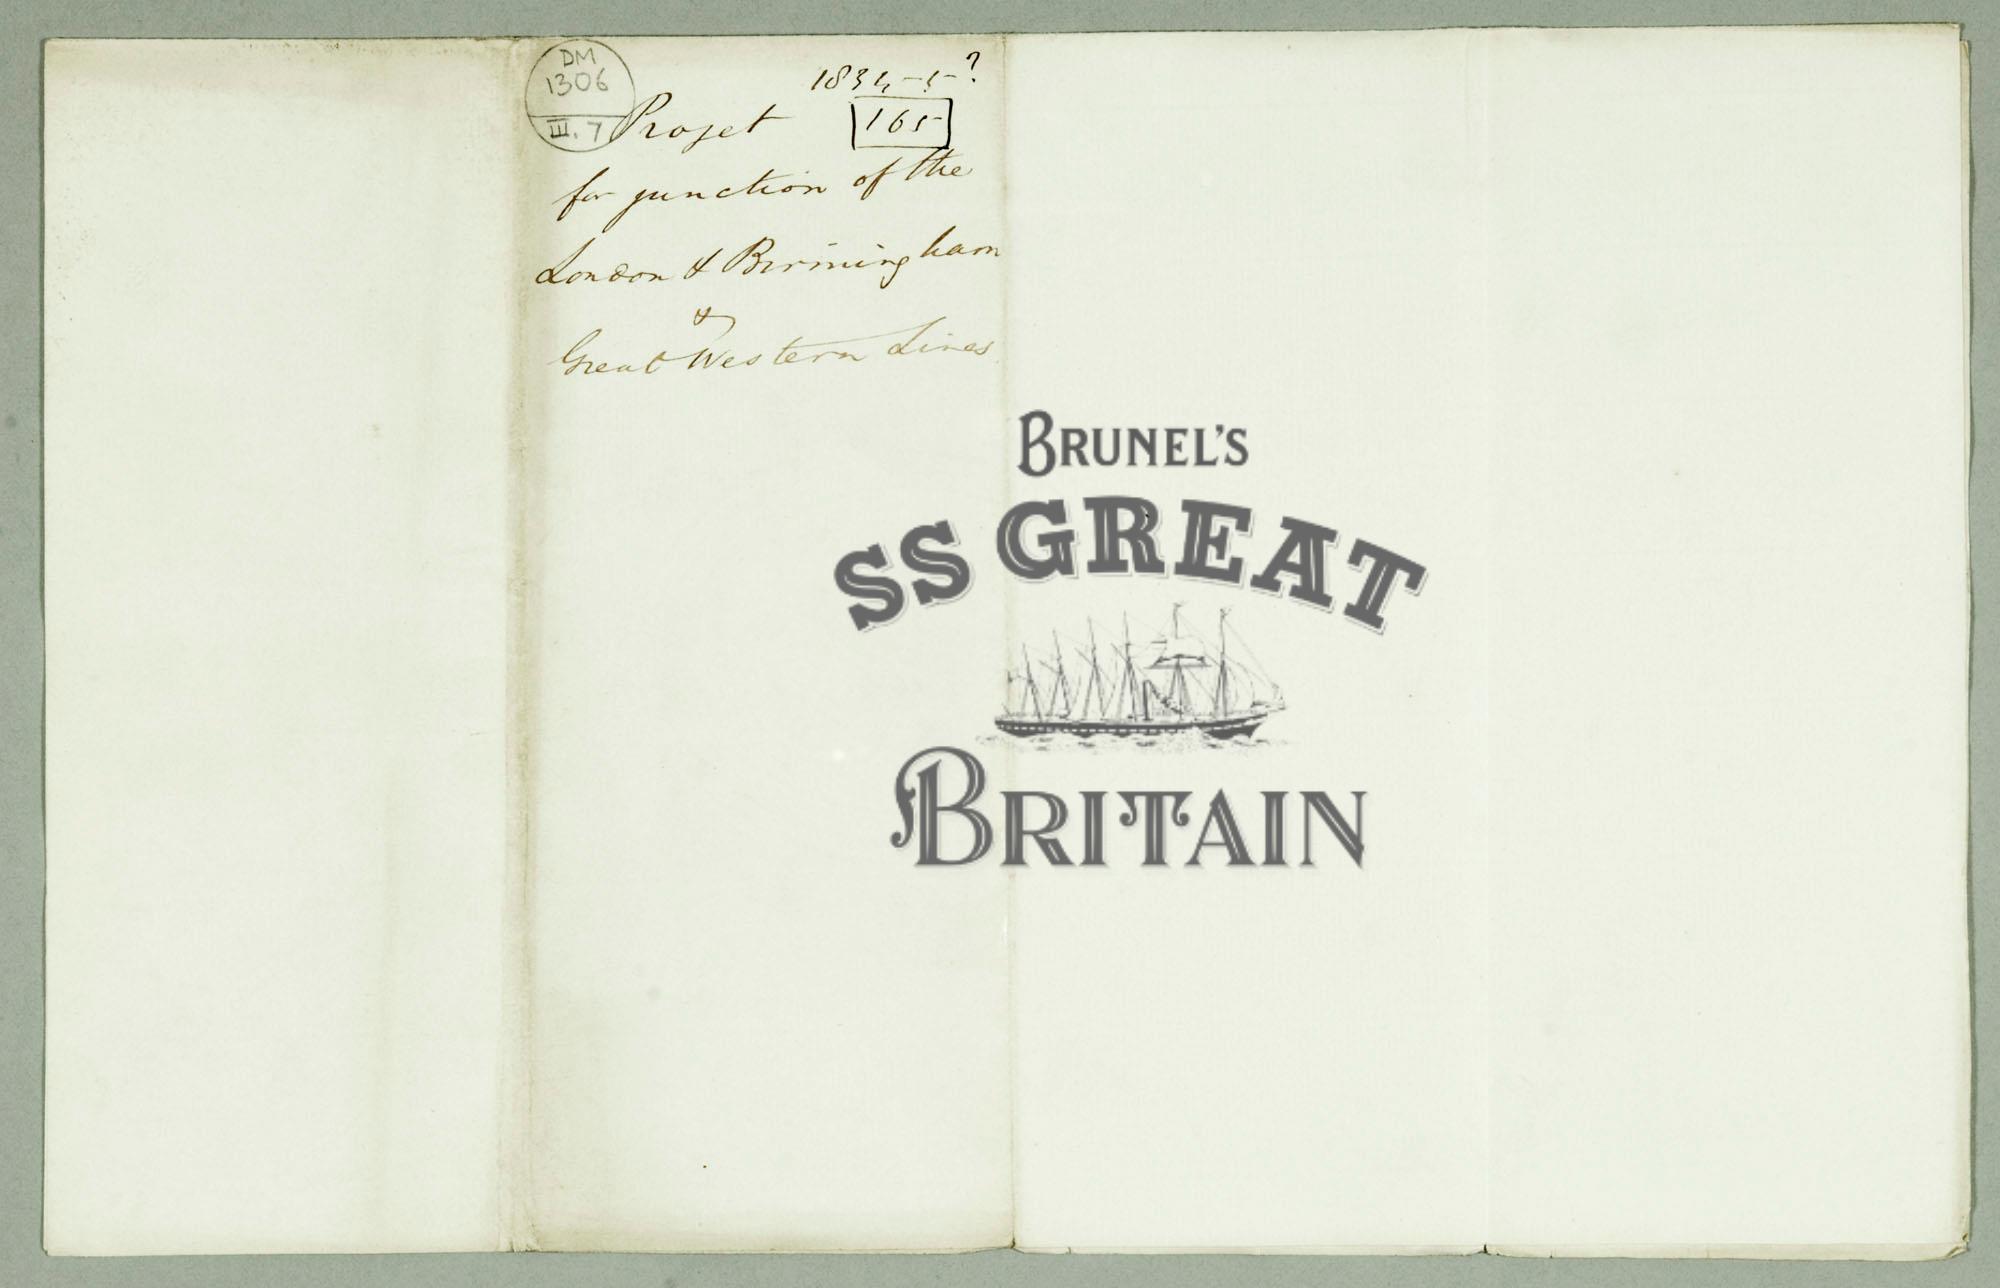 DM
1306
III. 7
1834-5?
165
Projet
for junction of the
London & Birmingham
&
Great Western Lines
BRUNEL'S
SS GREAT
BRITAIN